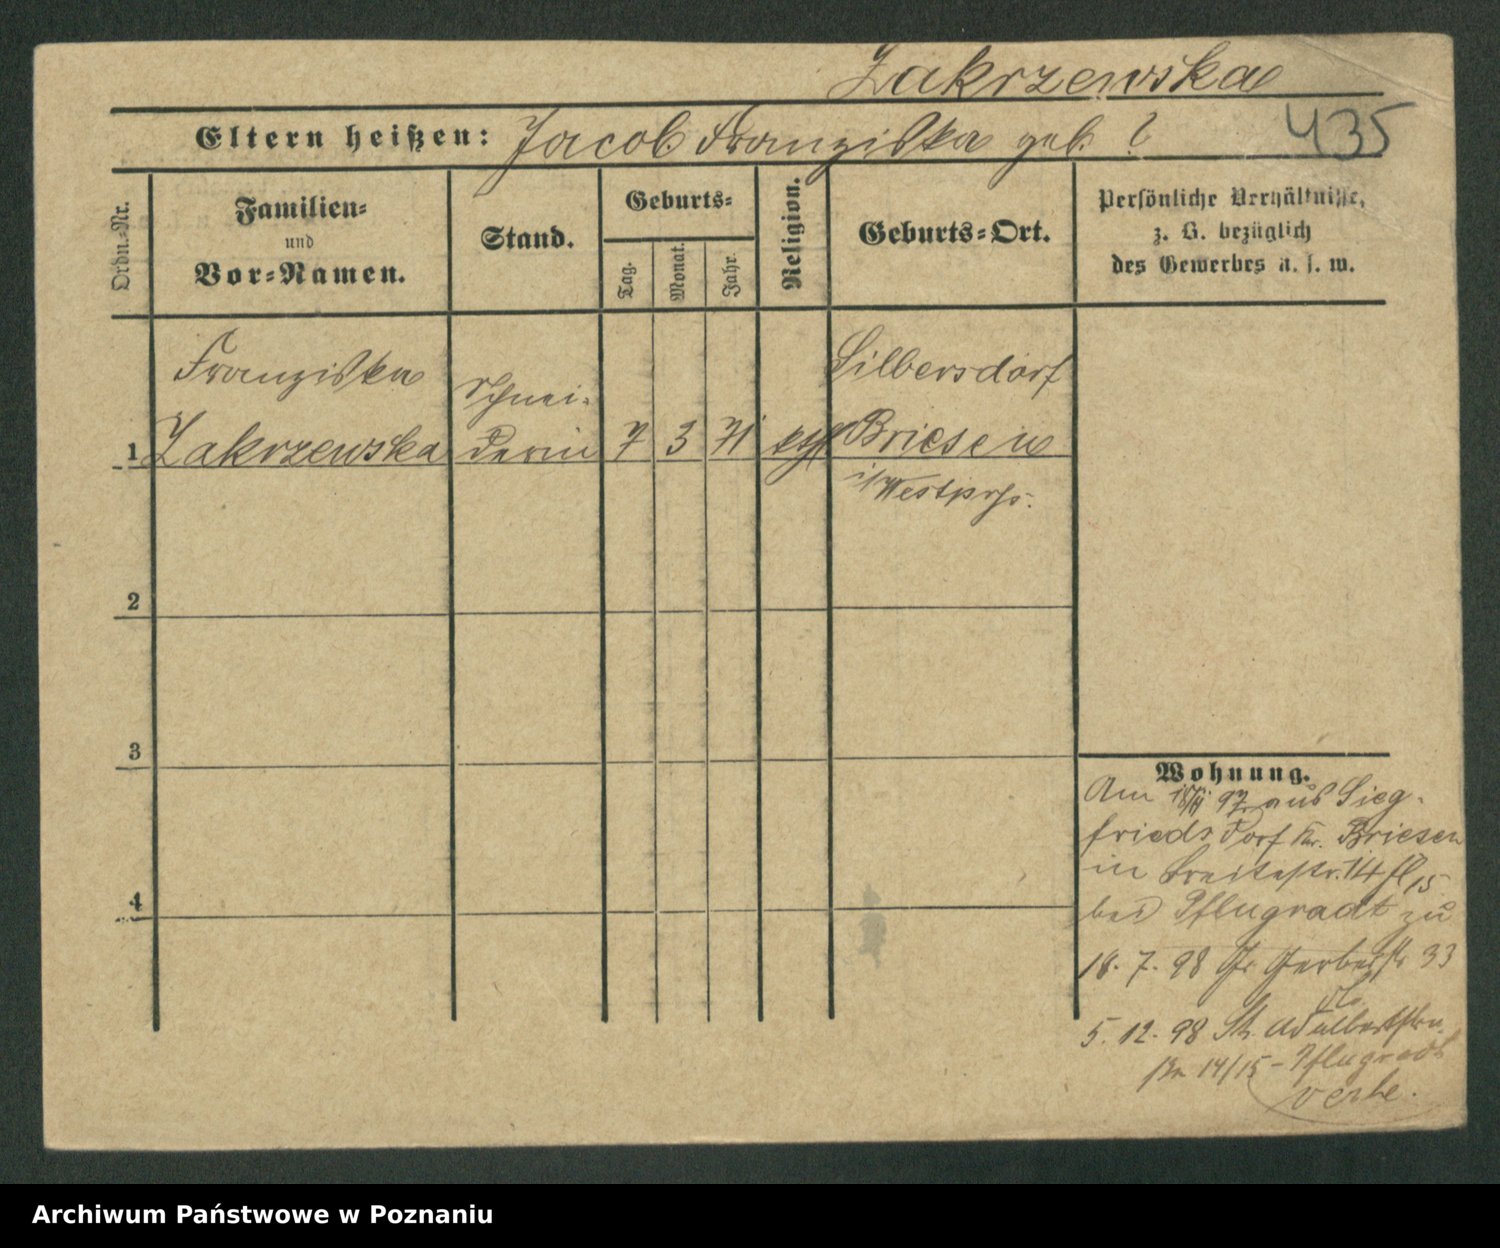 Zakrzewska
435
Eltern heißen: Jacob Franziska geb. ?
Ordn.-Nr.
Familien-
und
Vor-Namen.
Stand.
Geburts-
Tag.
Monat.
Jahr.
Religion.
Geburts-Ort.
Persönliche Verhältnisse,
z. B. bezüglich
des Gewerbes u. s. w.
Franziska
Zakrzewska
Schnei-
derin
1
7
3
71
kath
Silbersdorf
Briesen
i/Westprß.
2
3
4
Wohnung.
Am 97 aus Sieg-
friedsdorf Kr. Briesen
in Breitestr. 14 15
bei Pflugradt zu
18. 7. 98 Gr Gerberstr 33
5. 12. 98 St. Adalbertstr.
14/15 - Pflugradt
verhe.
Archiwum Państwowe w Poznaniu